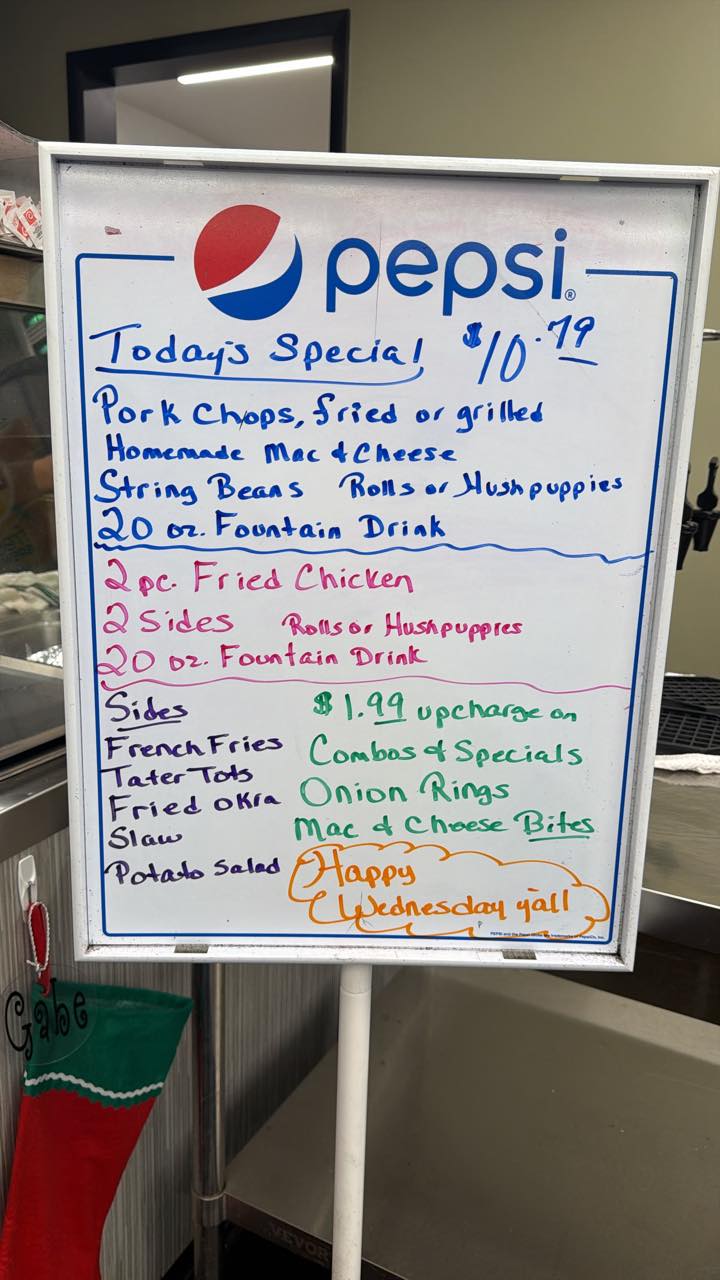 pepsi®
Today's Special $10.79
Pork Chops, fried or grilled
Homemade Mac & Cheese
String Beans Rolls or Hushpuppies
20 oz. Fountain Drink
2 pc. Fried Chicken
2 Sides Rolls or Hushpuppies
20 oz. Fountain Drink
Sides
French Fries
Tater Tots
Fried Okra
Slaw
Potato Salad
$1.99 upcharge on
Combos & Specials
Onion Rings
Mac & Cheese Bites
Happy
Wednesday y'all
Gabe
VEVOR